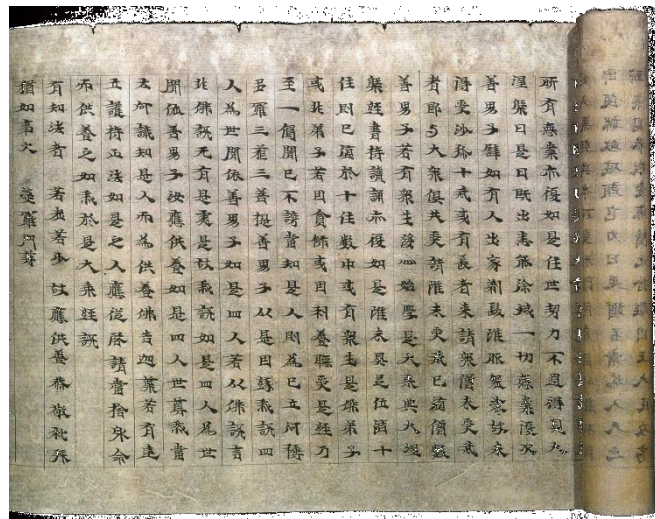 所有惡業亦復如是住世勢力不過得見大
涅槃日是日既出悉能除滅一切惡業復次
善男子譬如有人出家剃髮雖服袈裟故未
得受沙弥十戒或有長者來請衆僧未受戒
者即与大衆俱共受請雖未受戒已墮僧數
善男子若有衆生發心始學是大乘典大涅
槃經書持讀誦亦復如是雖未具足位階十
住則已墮於十住數中或有衆生是佛弟子
或非弟子若因貪怖或因利養聽受是經乃
至一偈聞已不謗當知是人則爲已近阿耨
多羅三藐三菩提善男子以是因緣我說四
人爲世間依善男子如是四人若以佛說言
非佛說无有是處是故我說如是四人爲世
間依善男子汝應供養如是四人世尊我當
云何識知是人而爲供養佛告迦葉若有建
立護持正法如是之人應從啓請當捨身命
而供養之如我於是大乘經說
有知法者 若老若少 故應供養 恭敬礼拜
猶如事火 婆羅門等